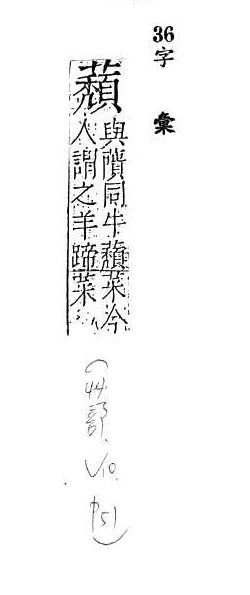 36字 彙
蘈
與隤同牛蘈菜今
人謂之羊蹄菜
(艸部、V10. p51)